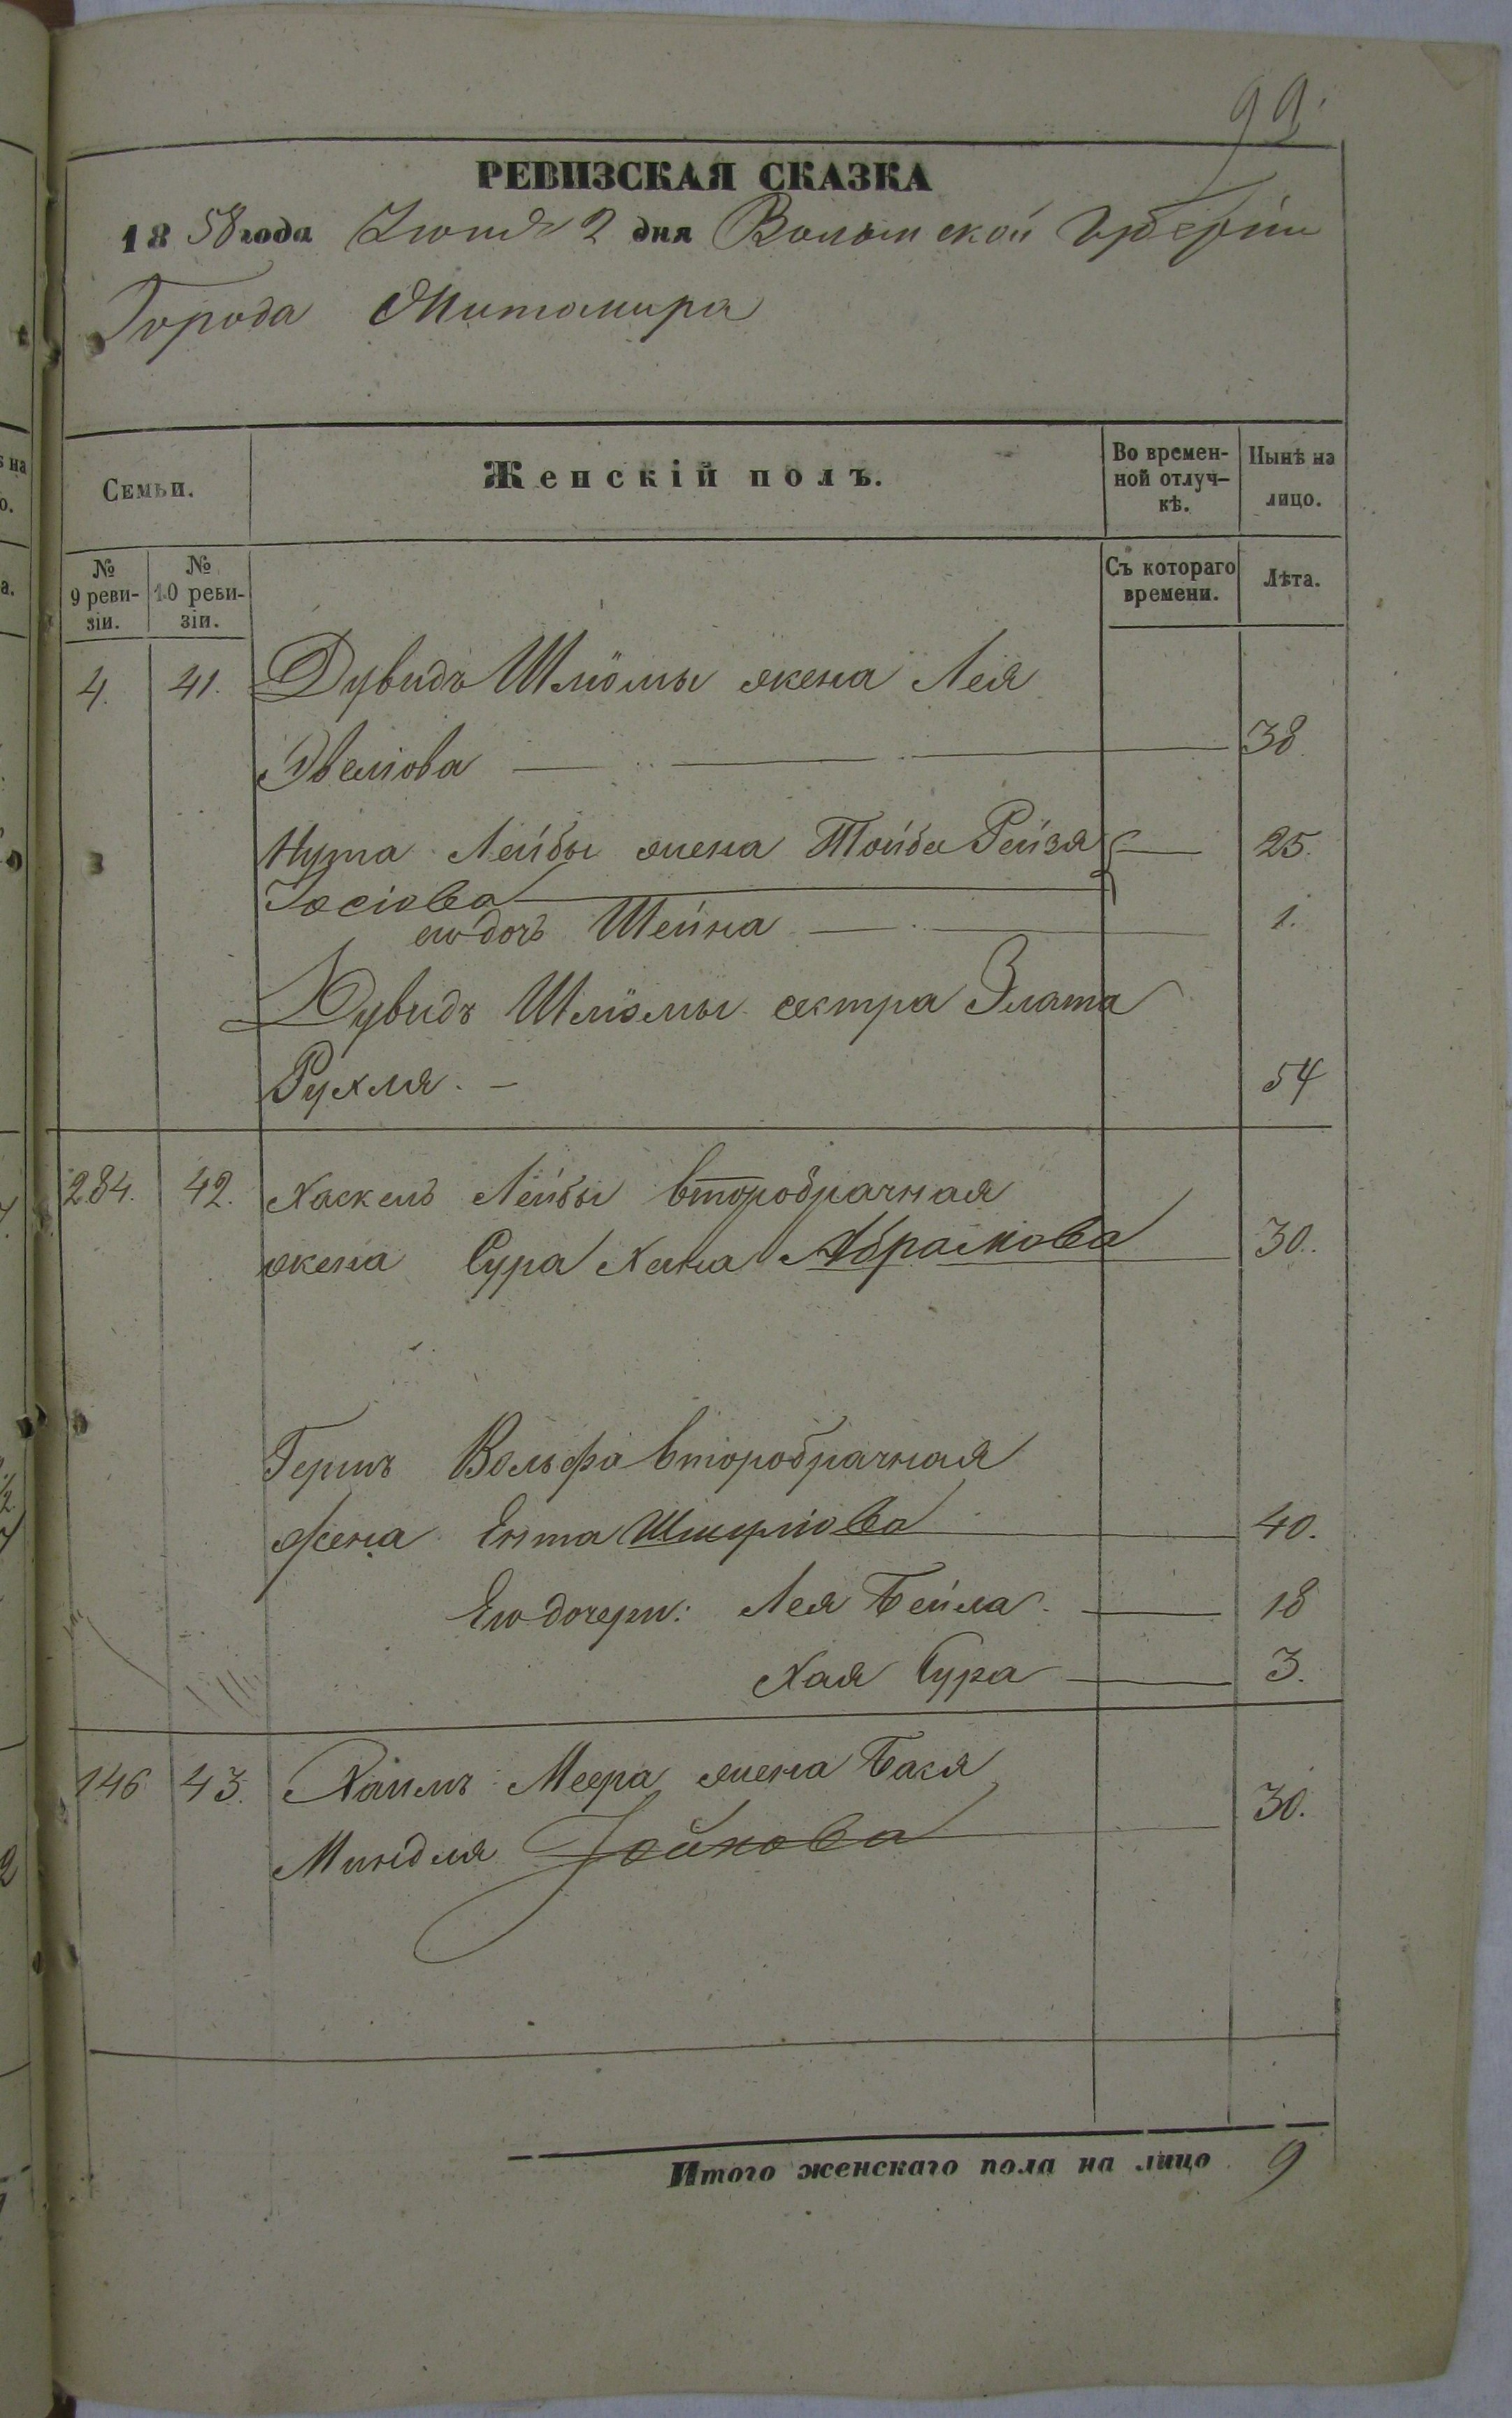 99.
РЕВИЗСКАЯ СКАЗКА
1858 года Іюня 2 дня Волынской Губерніи
Города Житомира
Семьи.
Женскій полъ.
Во времен-
ной отлуч-
кѣ.
Нынѣ на
лицо.
№
9 реви-
зіи.
№
10 реви-
зіи.
Съ котораго
времени.
Лѣта.
4. 41. Дувидъ Шліомы жена Лея
38
Нута Лейбы жена Тойба Рейзя 25.
Іосіова
его дочь Шейна 1.
Дувидъ Шліомы сестра Злата
Рухля. 54
284. 42. Хаскель Лейбы второбрачная
жена Сура Хана Абрамова 30.
Гершъ Вольфа второбрачная
жена Ента Шмуліова 40.
Его дочери: Лея Бейла 18
Хая Сура 3.
146 43. Хаимъ Меера жена Бася
Миндля 30.
Итого женскаго пола на лицо 9